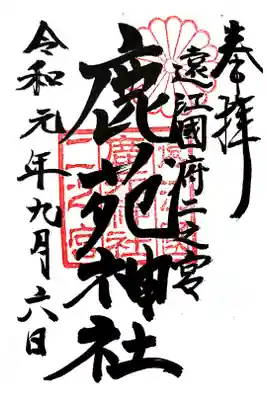 奉拝
遠江國府二之宮
鹿苑神社
令和元年九月六日